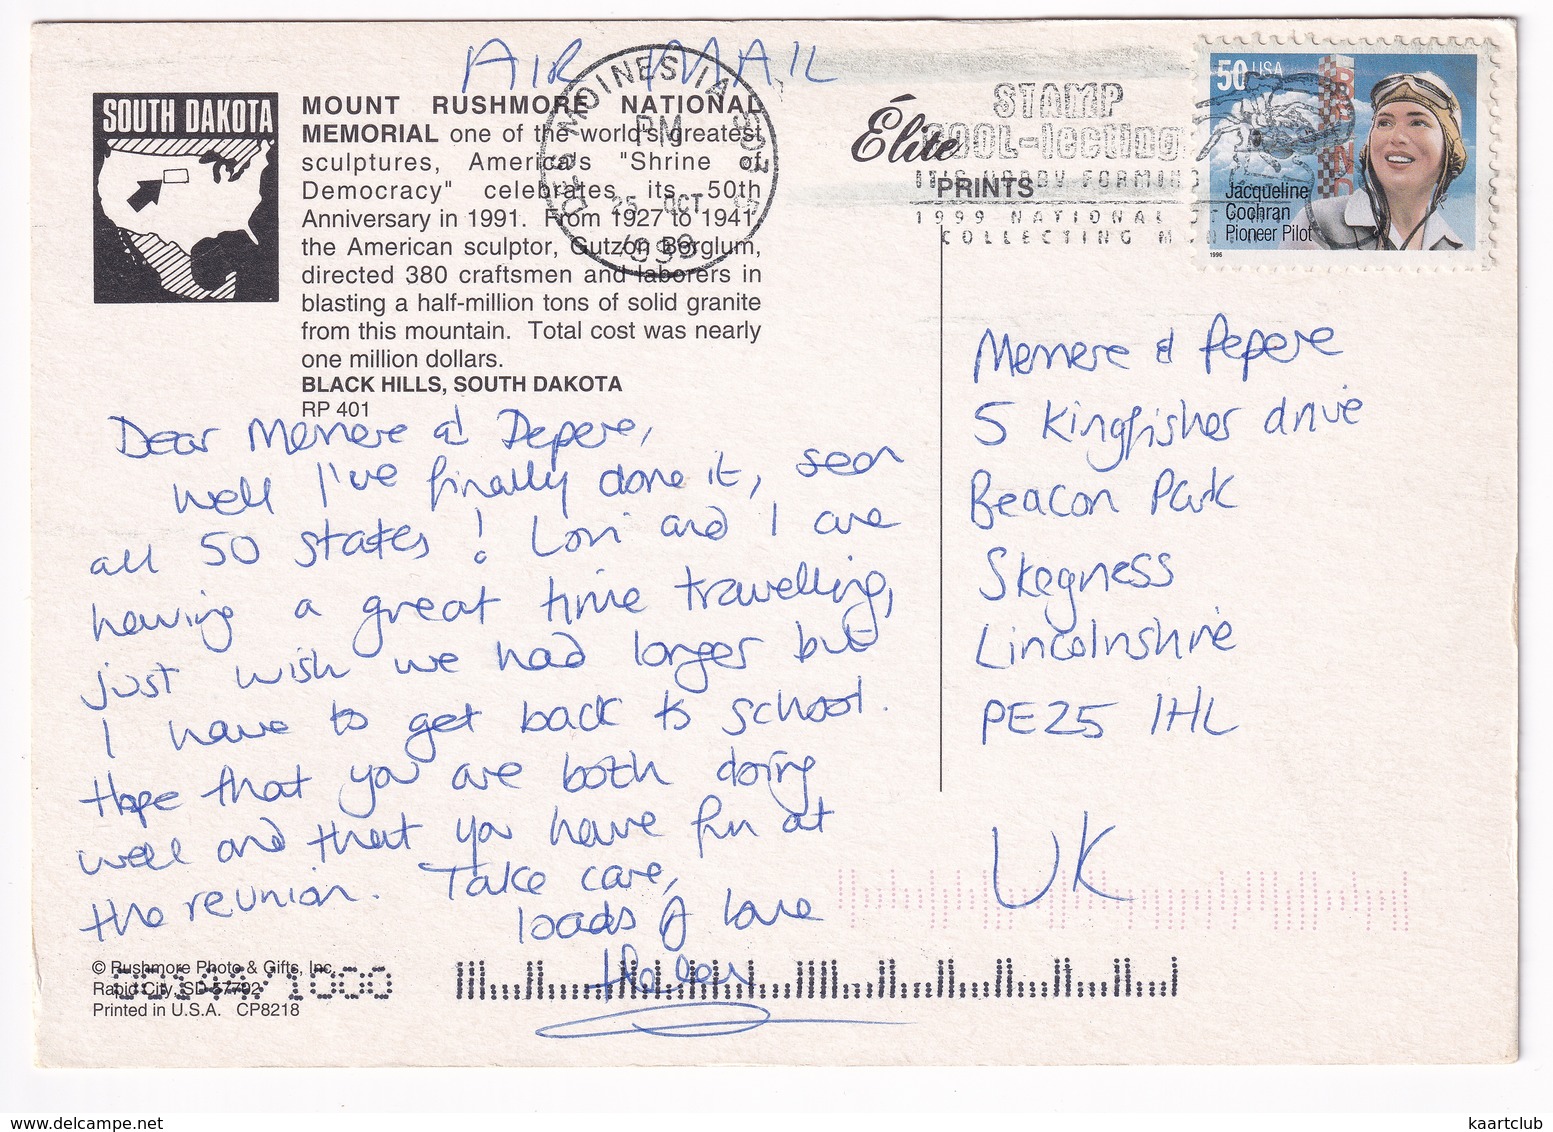 AIR MAIL
SOUTH DAKOTA
MOUNT RUSHMORE NATIONAL
MEMORIAL one of the world's greatest
sculptures, America's "Shrine of
Democracy" celebrates its 50th
Anniversary in 1991. From 1927 to 1941
the American sculptor, Gutzon Borglum,
directed 380 craftsmen and laborers in
blasting a half-million tons of solid granite
from this mountain. Total cost was nearly
one million dollars.
BLACK HILLS, SOUTH DAKOTA
RP 401
DES MOINES IA 503
PM
25 OCT
1999
Élite
PRINTS
STAMP
COOL-lecting
IT'S HOBBY FORMING
1999 NATIONAL
COLLECTING
50 USA
Jacqueline
Cochran
Pioneer Pilot
1996
Dear Memere & Pepere,
Well I've finally done it, seen
all 50 states! Lori and I are
having a great time travelling,
just wish we had longer but
I have to get back to school.
Hope that you are both doing
well and that you have fun at
the reunion. Take care,
loads of love
Helen
Memere & Pepere
5 Kingfisher drive
Beacon Park
Skegness
Lincolnshire
PE25 1HL
UK
© Rushmore Photo & Gifts, Inc.
Rapid City, SD 57702
Printed in U.S.A. CP8218
kaartclub